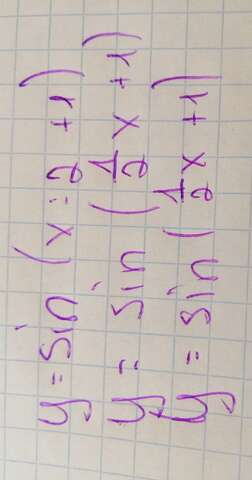 y = sin (x : 2 + 1)
y = sin (1/2 x + 1)
y = sin (1/2 x + 1)